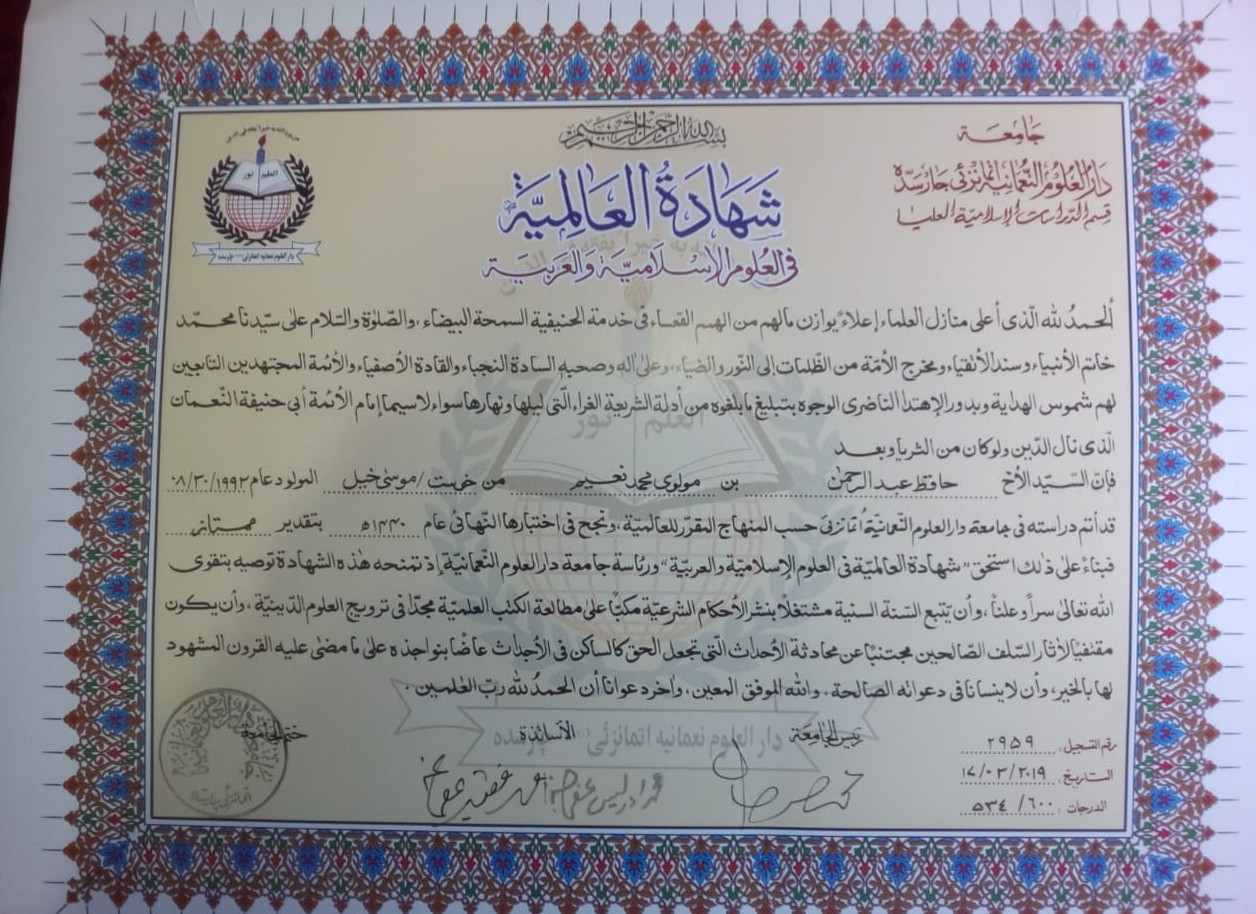 بسم الله الرحمن الرحيم
جامعة
دار العلوم النعمانية اتمانزئی چارسده
قسم الدراسات الإسلامية العليا
العلم نور
دار العلوم نعمانيه اتمانزئی چارسده
شهادة العالمية
في العلوم الإسلامية والعربية
ألحمدُ لله الّذى أعلى منازل العلماء إعلاءً يوازن مالهم من الهمم القعساء فى خدمة الحنيفية السمحة البيضاء، والصّلوة والسّلام على سيّدنا محمّد
خاتم الأنبياء وسند الأتقياء ومخرج الأمّة من الظّلمات إلى النّور والضياء، وعلى اله وصحبه السادة النجباء والقادة الأصفياء والأئمة المجتهدين التابعين
لهم شموس الهداية وبدور الإهتداء الناضرى الوجوه بتبليغ ما بلغوه من أدلة الشريعة الغراء، الّتى ليلها ونهارها سواء لاسيما إمام الأئمة أبى حنيفة النّعمان
الّذى نال الدّين ولو كان من الثريا وبعد
فإنّ السّيّد الأخ حافظ عبد الرحمٰن بن مولوى محمد نعيم من خوست /موسٰى خيل المولود عام ٠٨/٣٠/١٩٩٢
قد أتم دراسته فى جامعة دار العلوم النّعمانيّة اُتمانزئى حسب المنهاج المقرّر للعالميّة، ونجح فى اختبارها النّهائى عام ١٤٤٠ه بتقدير ممتاز
فبناءً على ذٰلك استحق "شهادة العالميّة فى العلوم الإسلاميّة والعربيّة" ورئاسة جامعة دار العلوم النّعمانيّة إذ تمنحه هٰذه الشهادة توصيه بتقوى
الله تعالىٰ سراً وعلناً، وأن يتبع السّنة السنية مشتغلاً بنشر الأحكام الشرعيّة مكبّاً على مطالعة الكتب العلميّة مجدّاً فى ترويج العلوم الدّينيّة، وأن يكون
مقتفياً لأثار السّلف الصّالحين مجتنباً عن محادثة الأحداث الّتى تجعل الحق كالساكن فى الأجداث عاضّا بنواجذه على ما مضٰى عليه القرون المشهود
لها بالخير، وأن لاينسانا فى دعواته الصّالحة، والله الموفق المعين، واٰخر دعوانا أن الحمدُ لله ربّ العٰلمين.
رئيس الجامعة
الأساتذة
ختم الجامعة
رقم التسجيل: ٢٩٥٩
التاريخ: ١٧/٠٣/٢٠١٩
الدرجات: ٥٣٤/٦٠٠